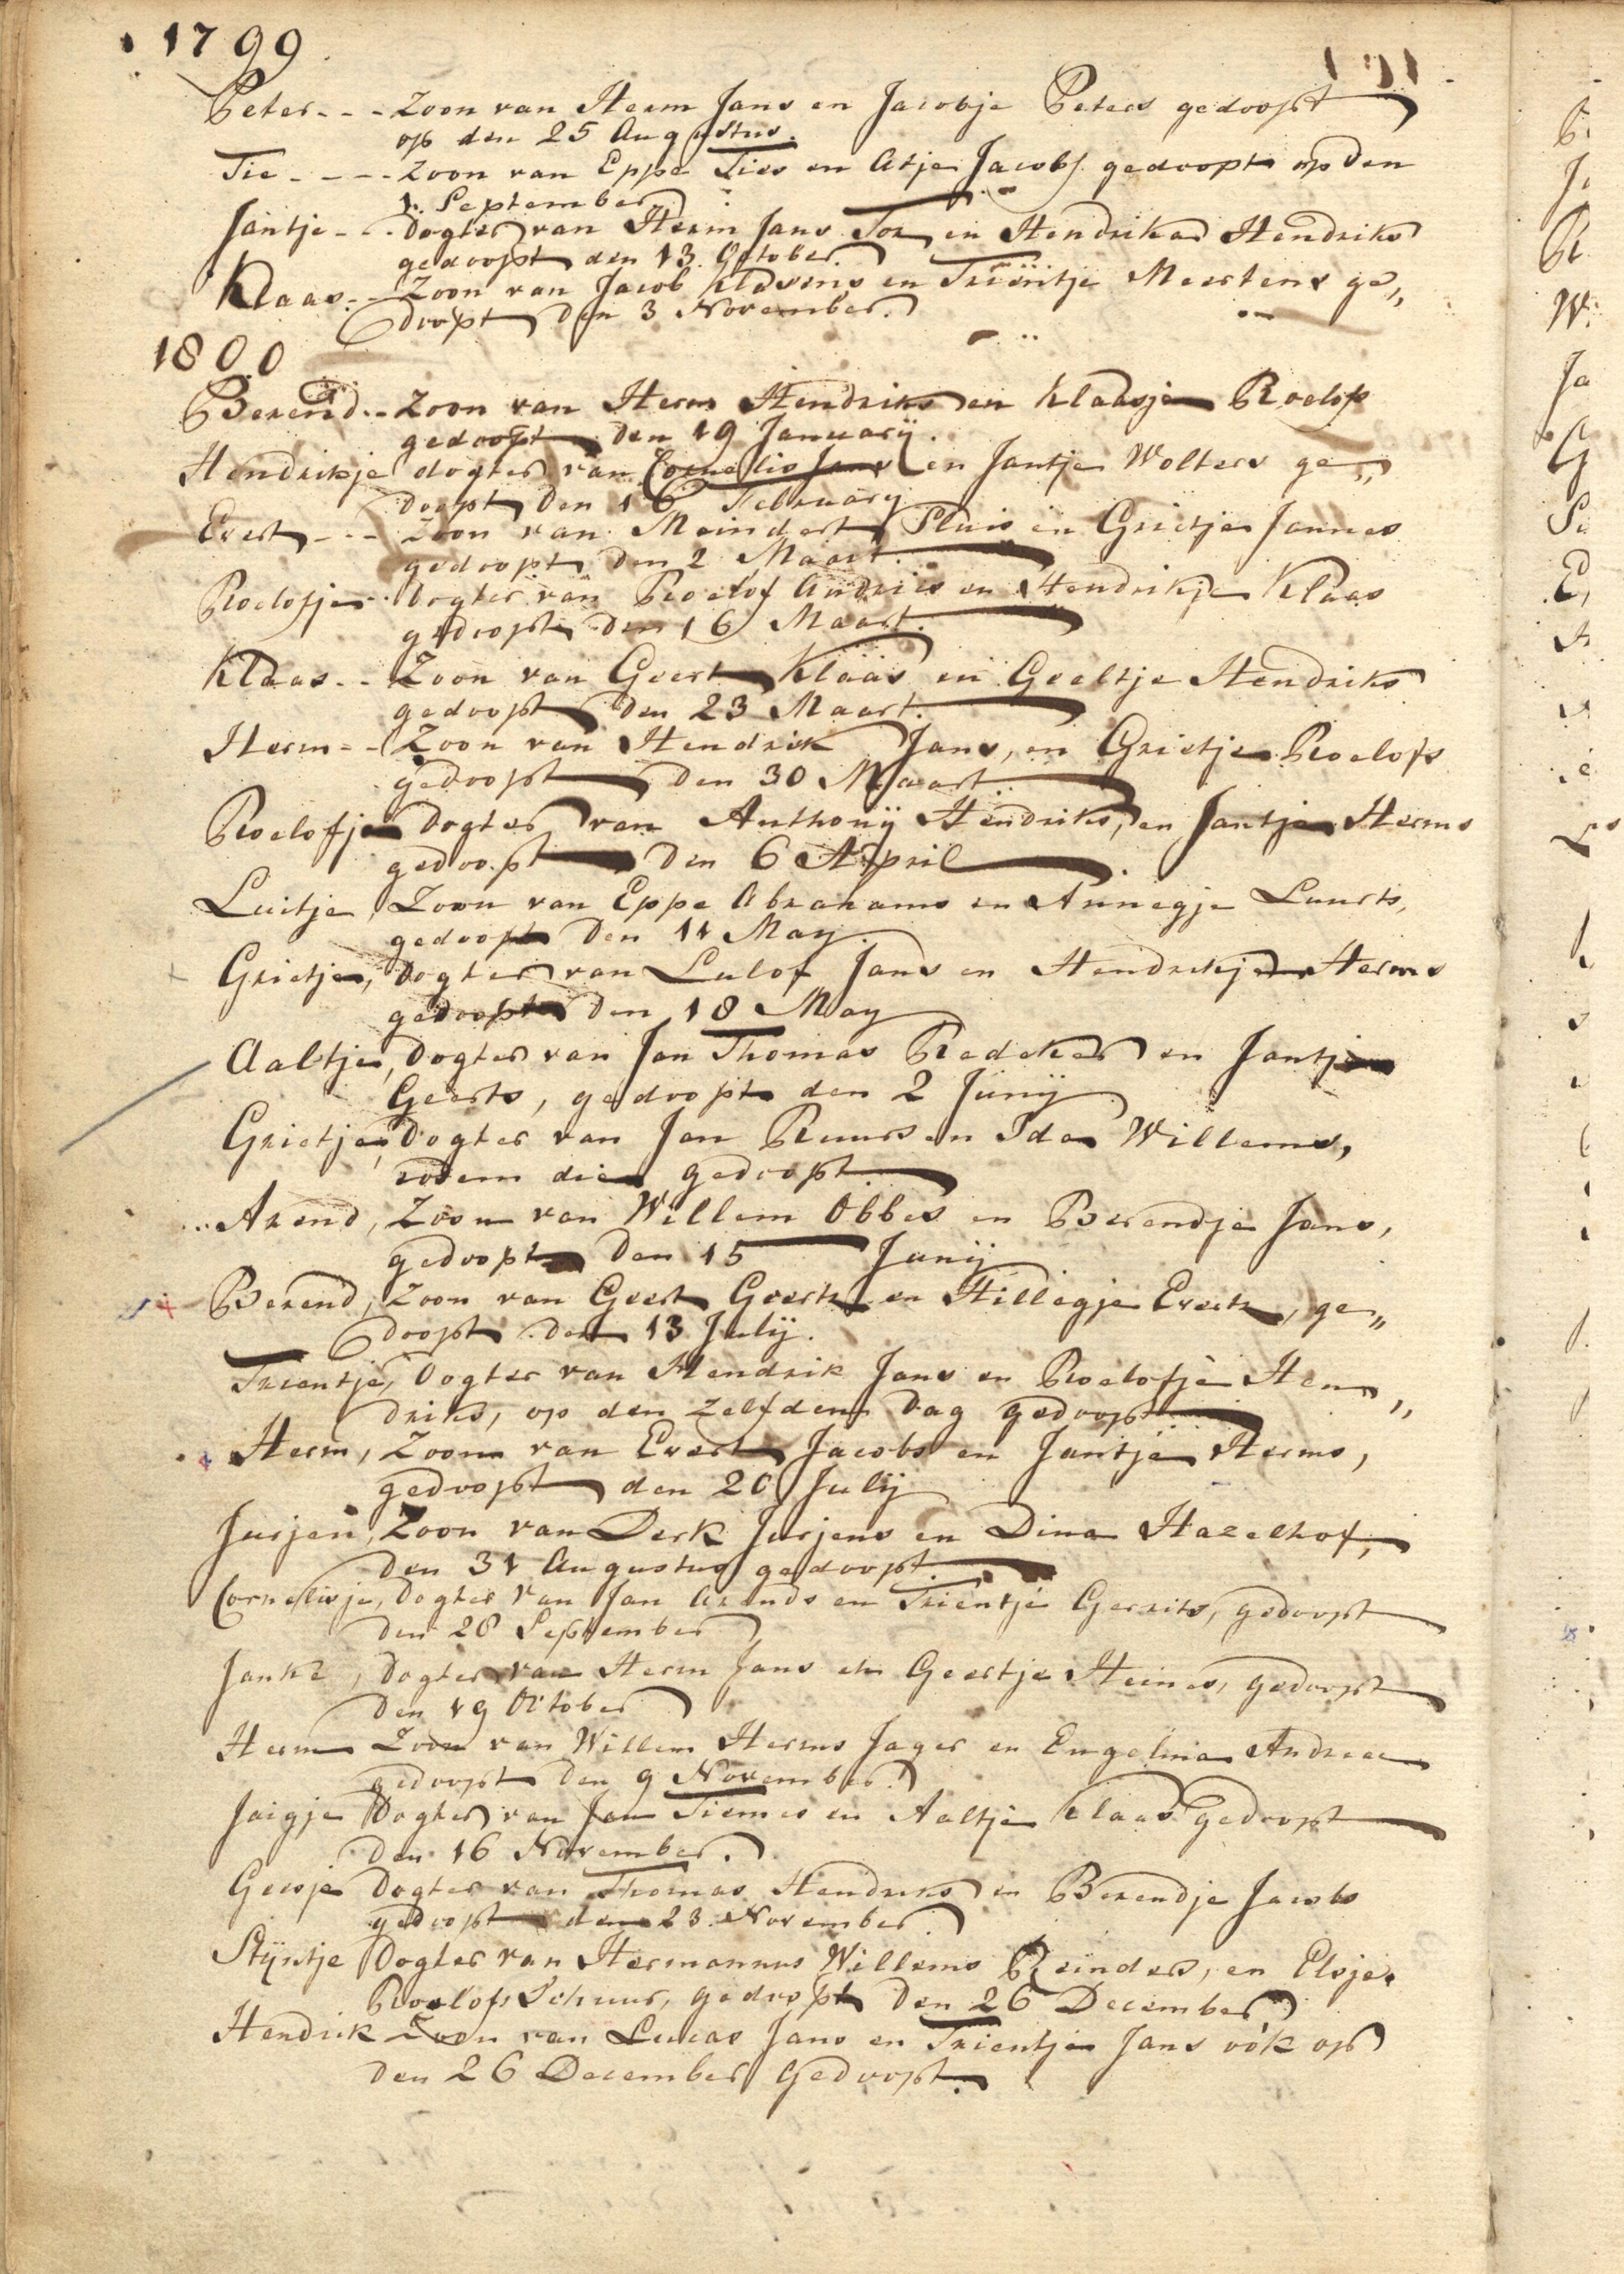 1799
Peter - - - Zoon van Herm Jans en Jacobje Peters gedoopt
op den 25 Augustus.
Tie - - - - Zoon van Eppe Ties en Atje Jacobs gedoopt op den
1. September
Jantje - - Dogter van Herm Jans Tor en Hendrika Hendriks
gedoopt den 13. October.
Klaas - - Zoon van Jacob Klasens en Trientje Meertens ge„
doopt den 3 November.
1800
Berend - - Zoon van Herm Hendriks en Klaasje Roelofs
gedoopt den 19 January.
Hendrikje dogter van Cornelis Jans en Jantje Wolters ge„
doopt den 16 February
Evert - - - Zoon van Meindert Pluis en Grietje Jannes
gedoopt den 2 Maart.
Roelofje - Dogter van Roelof Andries en Hendrikje Klaas
gedoopt den 16 Maart.
Klaas - - Zoon van Geert Klaas en Geeltje Hendriks
gedoopt den 23 Maart.
Herm - - Zoon van Hendrik Jans, en Grietje Roelofs
gedoopt den 30 Maart.
Roelofje Dogter van Anthonij Hendriks, en Jantje Herms
gedoopt den 6 April
Luitje, Zoon van Eppe Abrahams en Annegje Luurts,
gedoopt den 11 May.
Grietje, Dogter van Lulof Jans en Hendrikje Herms
gedoopt den 18 May
Aaltje, Dogter van Jan Thomas Redeker en Jantje
Geerts, gedoopt den 2 Junij
Grietje, Dogter van Jan Ruurs en Ida Willems,
eodem die gedoopt
Arend, Zoon van Willem Obbes en Berendje Jans,
gedoopt den 15 Junij
Berend, Zoon van Geert Geerts en Hillegje Everts, ge„
doopt den 13 Julij.
Trientje, Dogter van Hendrik Jans en Roelofje Hen„
driks, op den zelfden dag gedoopt
Herm, Zoon van Evert Jacobs en Jantje Herms,
gedoopt den 20 Julij
Jurjen, Zoon van Derk Jurjens en Dina Hazelhof,
den 31 Augustus gedoopt.
Cornelisje, Dogter van Jan Arends en Trientje Gerrits, gedoopt
den 28 September
Janke, Dogter van Herm Jans en Geertje Heines, gedoopt
den 19 October
Herm Zoon van Willem Herms Jager en Engelina Andreae
gedoopt den 9 November.
Jaigje Dogter van Jan Tiemes en Aaltje Klaas gedoopt
den 16 November.
Geesje Dogter van Thomas Hendriks en Berendje Jacobs
gedoopt den 23. November
Stijntje Dogter van Hermannus Willems Reinders, en Elsje
Roelofs Schuur, gedoopt den 26 December
Hendrik Zoon van Lucas Jans en Trientje Jans ook op
den 26 December gedoopt.